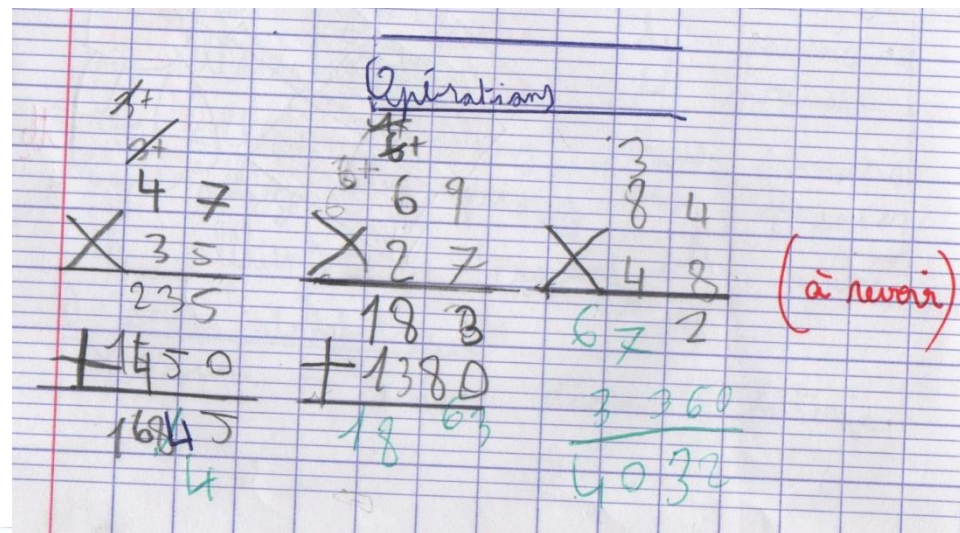 Opérations
47
X 35
235
+ 1450
4
69
X 27
183
+ 1380
1863
3
84
X 48
672
3 360
4032
(à revoir)